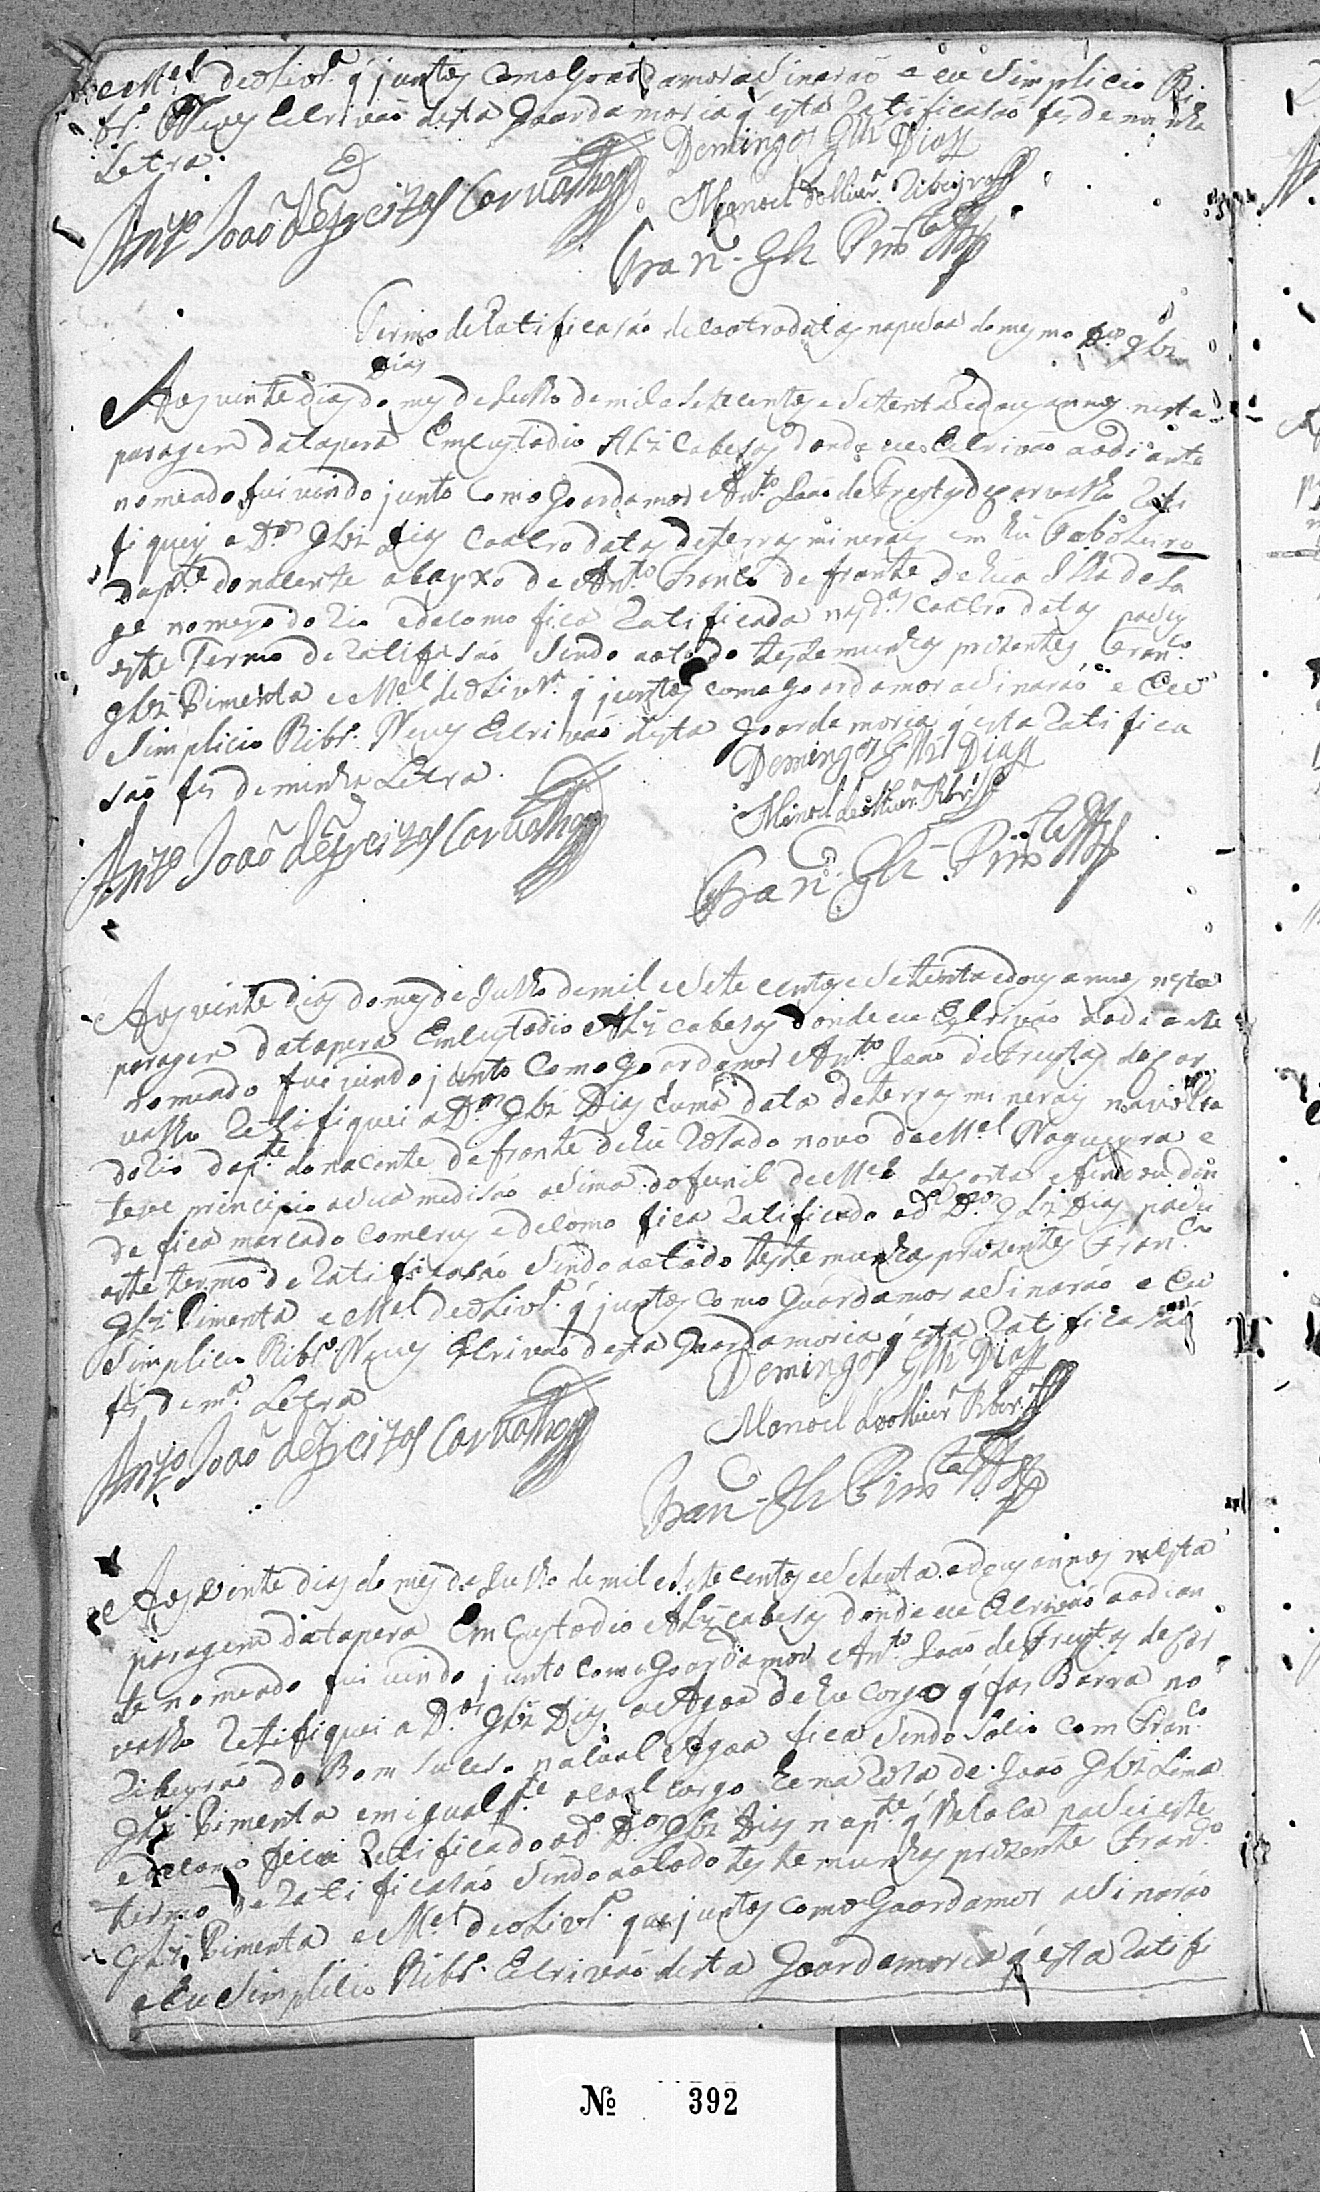 e M.el de oLivr.a q' juntos como Goardamor asinarão e eu Simplicio Ri
br.o Neves Escrivão desta Goardamoria q' esta Ratificasão fes de minha
Letra.
Domingos Glz Dias
Ant.o João de Freitas Carvalho
Manoel de olliver.a Ribeyro
Fran.co Glz Pim.ta
Termo de Ratificasão de coatro datas na pesoa do mesmo D.os Glz
Dias
Aos vinte dias do mes de Julho de mil e Setecentos e Setenta e dous annos nesta
paragem da tapera Em Custodio Alz Cabesas donde eu Escrivão ao diante
nomeado fui vindo junto Com o Goardamor Ant.o João de Freytas de Carvalho Rati
fiquey a D.os Glz Dias Coatro datas de terras minerais em hu Taboleiro
da p.te do nacente abayxo de Ant.o Franco de fronte de hua Ilha de La
ge no meyo do Rio e de como fica Ratificada nas d.as Coatro datas pasey
este Termo de Ratifisasão Sindo a todo testemunhas prezentes Fran.co
Glz Pimenta e M.el de oLivr.a q' juntos com o goardamor asinarão e Eu
Simplicio Ribr.o Neves Escrivão desta Goardamoria q' esta Ratifica
são fis de minha Letra.
Domingos Glz Dias
Manoel de olliver.a Rbr.o
Ant.o João de Freitas Carvalho
Fran.co Glz Pim.ta
Aos vinte dias do mes de Julho de mil e Sete centos e Setenta e dous annos nesta
paragem da tapera Em Custodio Alz cabesas donde eu Escrivão ao diante
nomeado fui vindo junto Com o Goardamor Ant.o João de Freytas de Car
valho Ratifiquei a D.os Glz Dias huma data de terras minerais na volta
do Rio da p.te do nacente de fronte de hu Rosado novo de M.el Nogueyra e
teve principio a Sua medisão asima do funil de M.el da Costa e findou don
de fica marcado com crus e de como fica Ratificado ao d.o D.os Glz Dias pasey
este termo de Ratificasão Sindo a todo testemunhas prezentes Fran.co
Glz Pimenta e M.el de oLivr.a q' juntos como Guardamor asinarão e Eu
Simplicio Ribr.o Neves Escrivão desta Goardamoria q' esta Ratificasão
fis de m.a Letra
Domingos Glz Dias
Manoel de olliver.a Rber.o
Ant.o João de Freitas Carvalho
Fran.co Glz Pim.ta
Aos vinte dias do mes de Julho de mil e Sete centos e Setenta e dous annos nesta
paragem da tapera Em Custodio Alz cabesas donde eu Escrivão ao dian
te nomeado fui vindo junto com o Goardamor Ant.o João de Freytas de Car
valho Ratifiquei a D.os Glz Dias a Agoa de hu corgo q' fas Barra no
Ribeyrão do Bom Suceso na coal Agoa fica Sindo Socio com Fran.co
Glz Pimenta em igual p.te o coal corgo he na Rosa de João Glz Lima
e de como fica Ratificado ao d.o D.os Glz Dias na p.te q' lhe toca pasei este
termo de Ratificasão Sindo a todo testemunhas prezente Fran.co
Glz Pimenta e M.el de oLivr.a que juntos com o Goardamor asinarão
e Eu Simplicio Ribr.o Escrivão desta Goardamoria q' esta Ratifi
№ 392